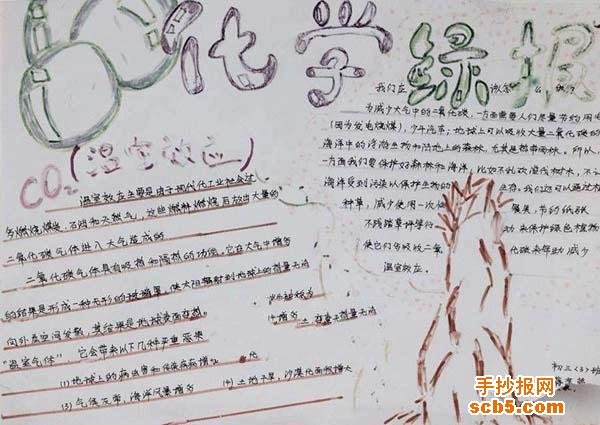 化学绿报
CO₂(温室效应)
温室效应主要是由于现代化工业社会过
多燃烧煤炭、石油和天然气，这些燃料燃烧后放出大量的
二氧化碳气体进入大气造成的
二氧化碳气体具有吸热和隔热的功能。它在大气中增多
的结果是形成一种无形的玻璃罩，使太阳辐射到地球上的热量无法
向外层空间发散，其结果是地球表面变热
"温室气体" 它会带来以下几种严重恶果
(1)地球上的病虫害和传染疾病增
(3)气候反常，海洋风暴增多
(4)土地干旱，沙漠化面积增大
我们应 该怎 么 做？
为减少大气中的二氧化碳，一方面需要人们尽量节约用电
(因为发电烧煤)，少开汽车；地球上可以吸收大量二氧化碳的
海洋中的浮游生物和陆地上的森林，尤其是热带雨林。所以，
一方面我们要保护好森林和海洋，比如不乱砍滥伐树木，不
海洋受到污染以保护生物的 生存。我们还可以通过植
种草，减少使用一次性 餐具，节约纸张
不践踏草坪等行 动来保护绿色植物
使它们多吸收二氧 化碳来帮助减少
温室效应。
初三(3)班
手抄报网
scb5.com